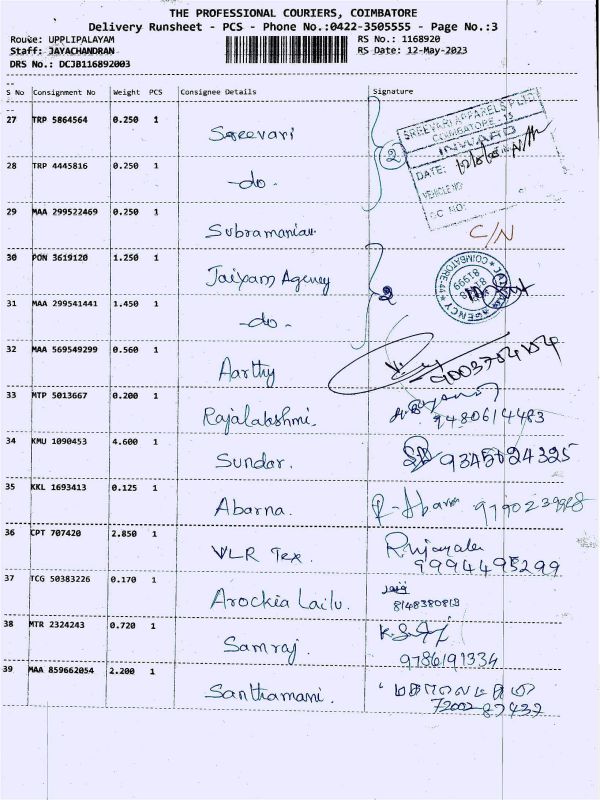 THE PROFESSIONAL COURIERS, COIMBATORE
Delivery Runsheet - PCS - Phone No.:0422-3505555 - Page No.:3
Route: UPPLIPALAYAM RS No.: 1168920
Staff: JAYACHANDRAN RS Date: 12-May-2023
DRS No.: DCJB116892003
S No Consignment No Weight PCS Consignee Details Signature
27 TRP 5864564 0.250 1 Sreevari
SREEVARI APPARELS
COIMBATORE - 15
INWARD
DATE:
VEHICLE NO
28 TRP 4445816 0.250 1 -do- 2
29 MAA 299522469 0.250 1 Subramanian C/N
30 PON 3619120 1.250 1 Jairam Agency 2
COIMBATORE-44
AGENCY
31 MAA 299541441 1.450 1 -do-
32 MAA 569549299 0.560 1 Aarthy
33 MTP 5013667 0.200 1 Rajalakshmi. 9480614483
34 KMU 1090453 4.600 1 Sundar. 9345024325
35 KKL 1693413 0.125 1 Abarna.
36 CPT 707420 2.850 1 VLR Tex. 9994495299
37 TCG 50383226 0.170 1 Arockia Lailu.
38 MTR 2324243 0.720 1 Samraj. 9786191334
39 MAA 859662054 2.200 1 Santhamani. 72002 87437